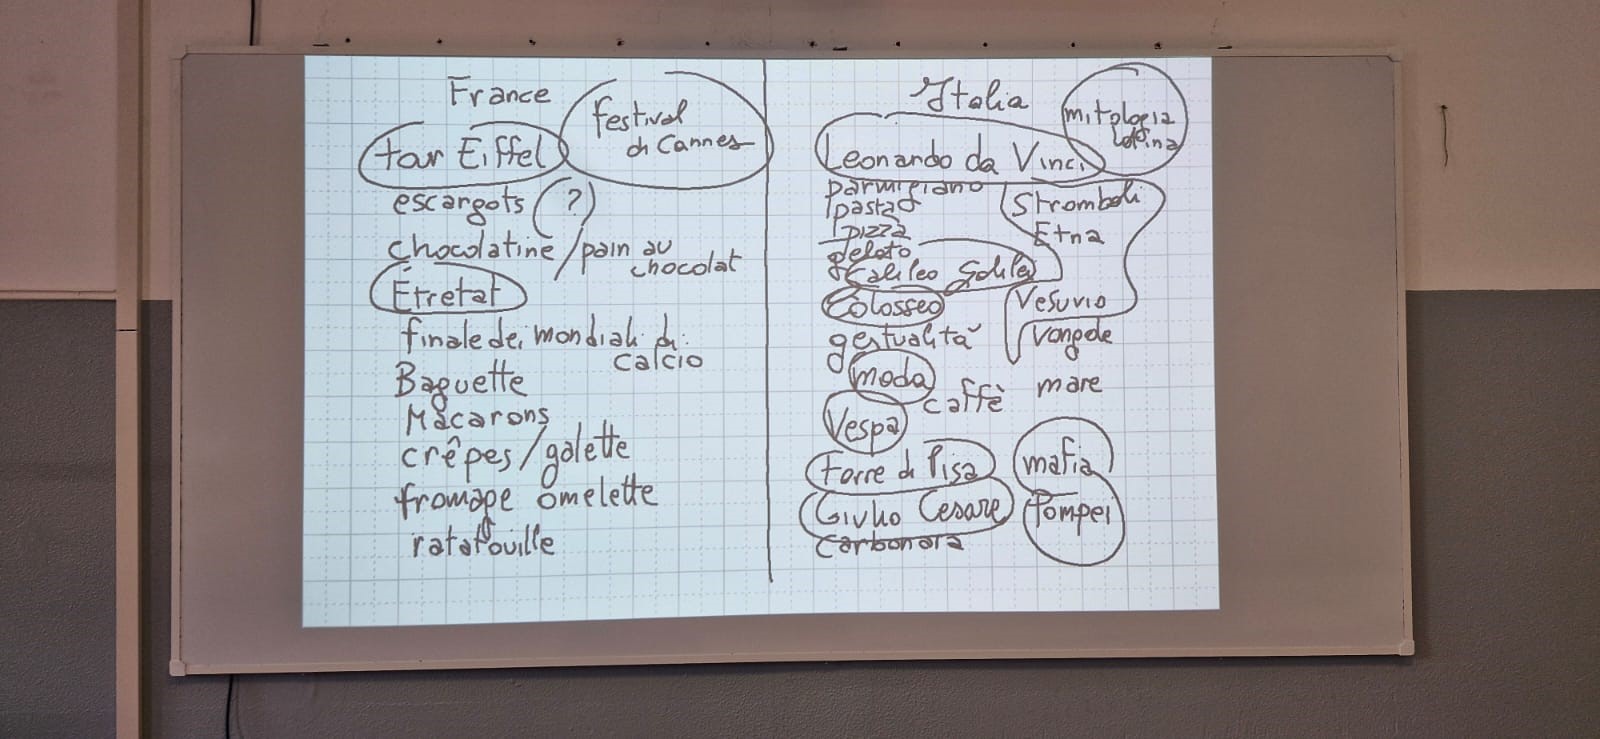 France
festival
di Cannes
tour Eiffel
escargots (?)
chocolatine / pain au
chocolat
Étretat
finale dei mondiali di
calcio
Baguette
Macarons
crêpes / galette
fromage omelette
ratatouille
Italia
mitologia
latina
Leonardo da Vinci
parmigiano
pasta
pizza
gelato
Galileo Galilei
Colosseo
gestualità
moda
caffè
Vespa
torre di Pisa
Giulio Cesare
carbonara
Stromboli
Etna
Vesuvio
vongole
mare
mafia
Pompei